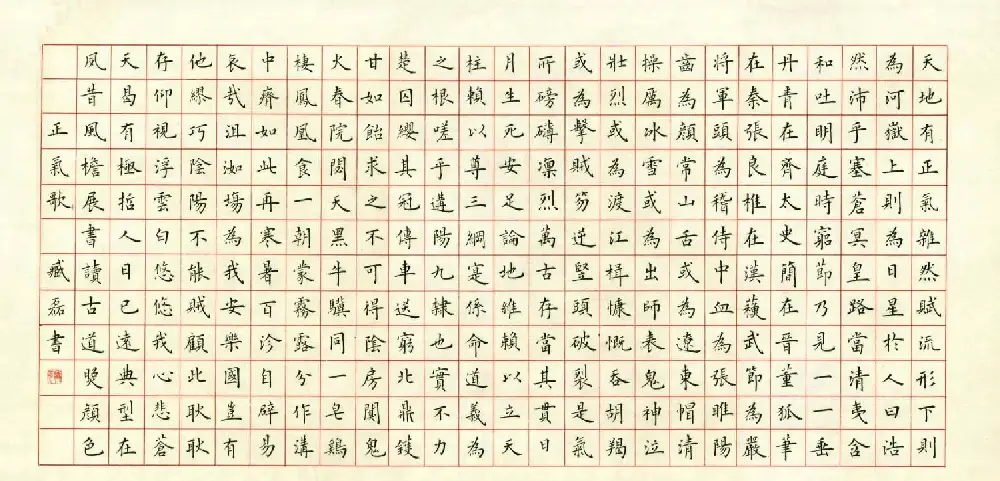 天地有正氣雜然賦流形下則
為河嶽上則為日星於人曰浩
然沛乎塞蒼冥皇路當清夷含
和吐明庭時窮節乃見一一垂
丹青在齊太史簡在晉董狐筆
在秦張良椎在漢蘇武節為嚴
將軍頭為稽侍中血為張睢陽
齒為顏常山舌或為遼東帽清
操厲冰雪或為出師表鬼神泣
壯烈或為渡江楫慷慨吞胡羯
或為擊賊笏逆豎頭破裂是氣
所磅礴凜烈萬古存當其貫日
月生死安足論地維賴以立天
柱賴以尊三綱寔係命道義為
之根嗟乎遘陽九隸也實不力
楚囚纓其冠傳車送窮北鼎鑊
甘如飴求之不可得陰房闃鬼
火春院閟天黑牛驥同一皂鷄
棲鳳凰食一朝蒙霧露分作溝
中瘠如此再寒暑百沴自辟易
哀哉沮洳場為我安樂國豈有
他繆巧陰陽不能賊顧此耿耿
存仰視浮雲白悠悠我心悲蒼
天曷有極哲人日已遠典型在
夙昔風檐展書讀古道照顏色
正氣歌 臧磊書